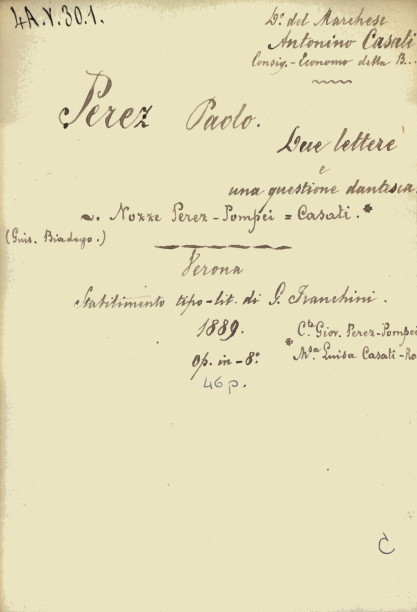 4A.V.30.1.
D.º del Marchese
Antonino Casali
Consig.-Economo della B...
Perez Paolo.
Due lettere
e
una questione dantesca.
~. Nozze Perez-Pompei = Casali.*
(Gius. Biadego.)
Verona
Stabilimento tipo-lit. di G. Franchini.
1889.
Op. in-8.º
46 p.
* C.te Giov. Perez-Pompei
M.sa Luisa Casali-Ro
C